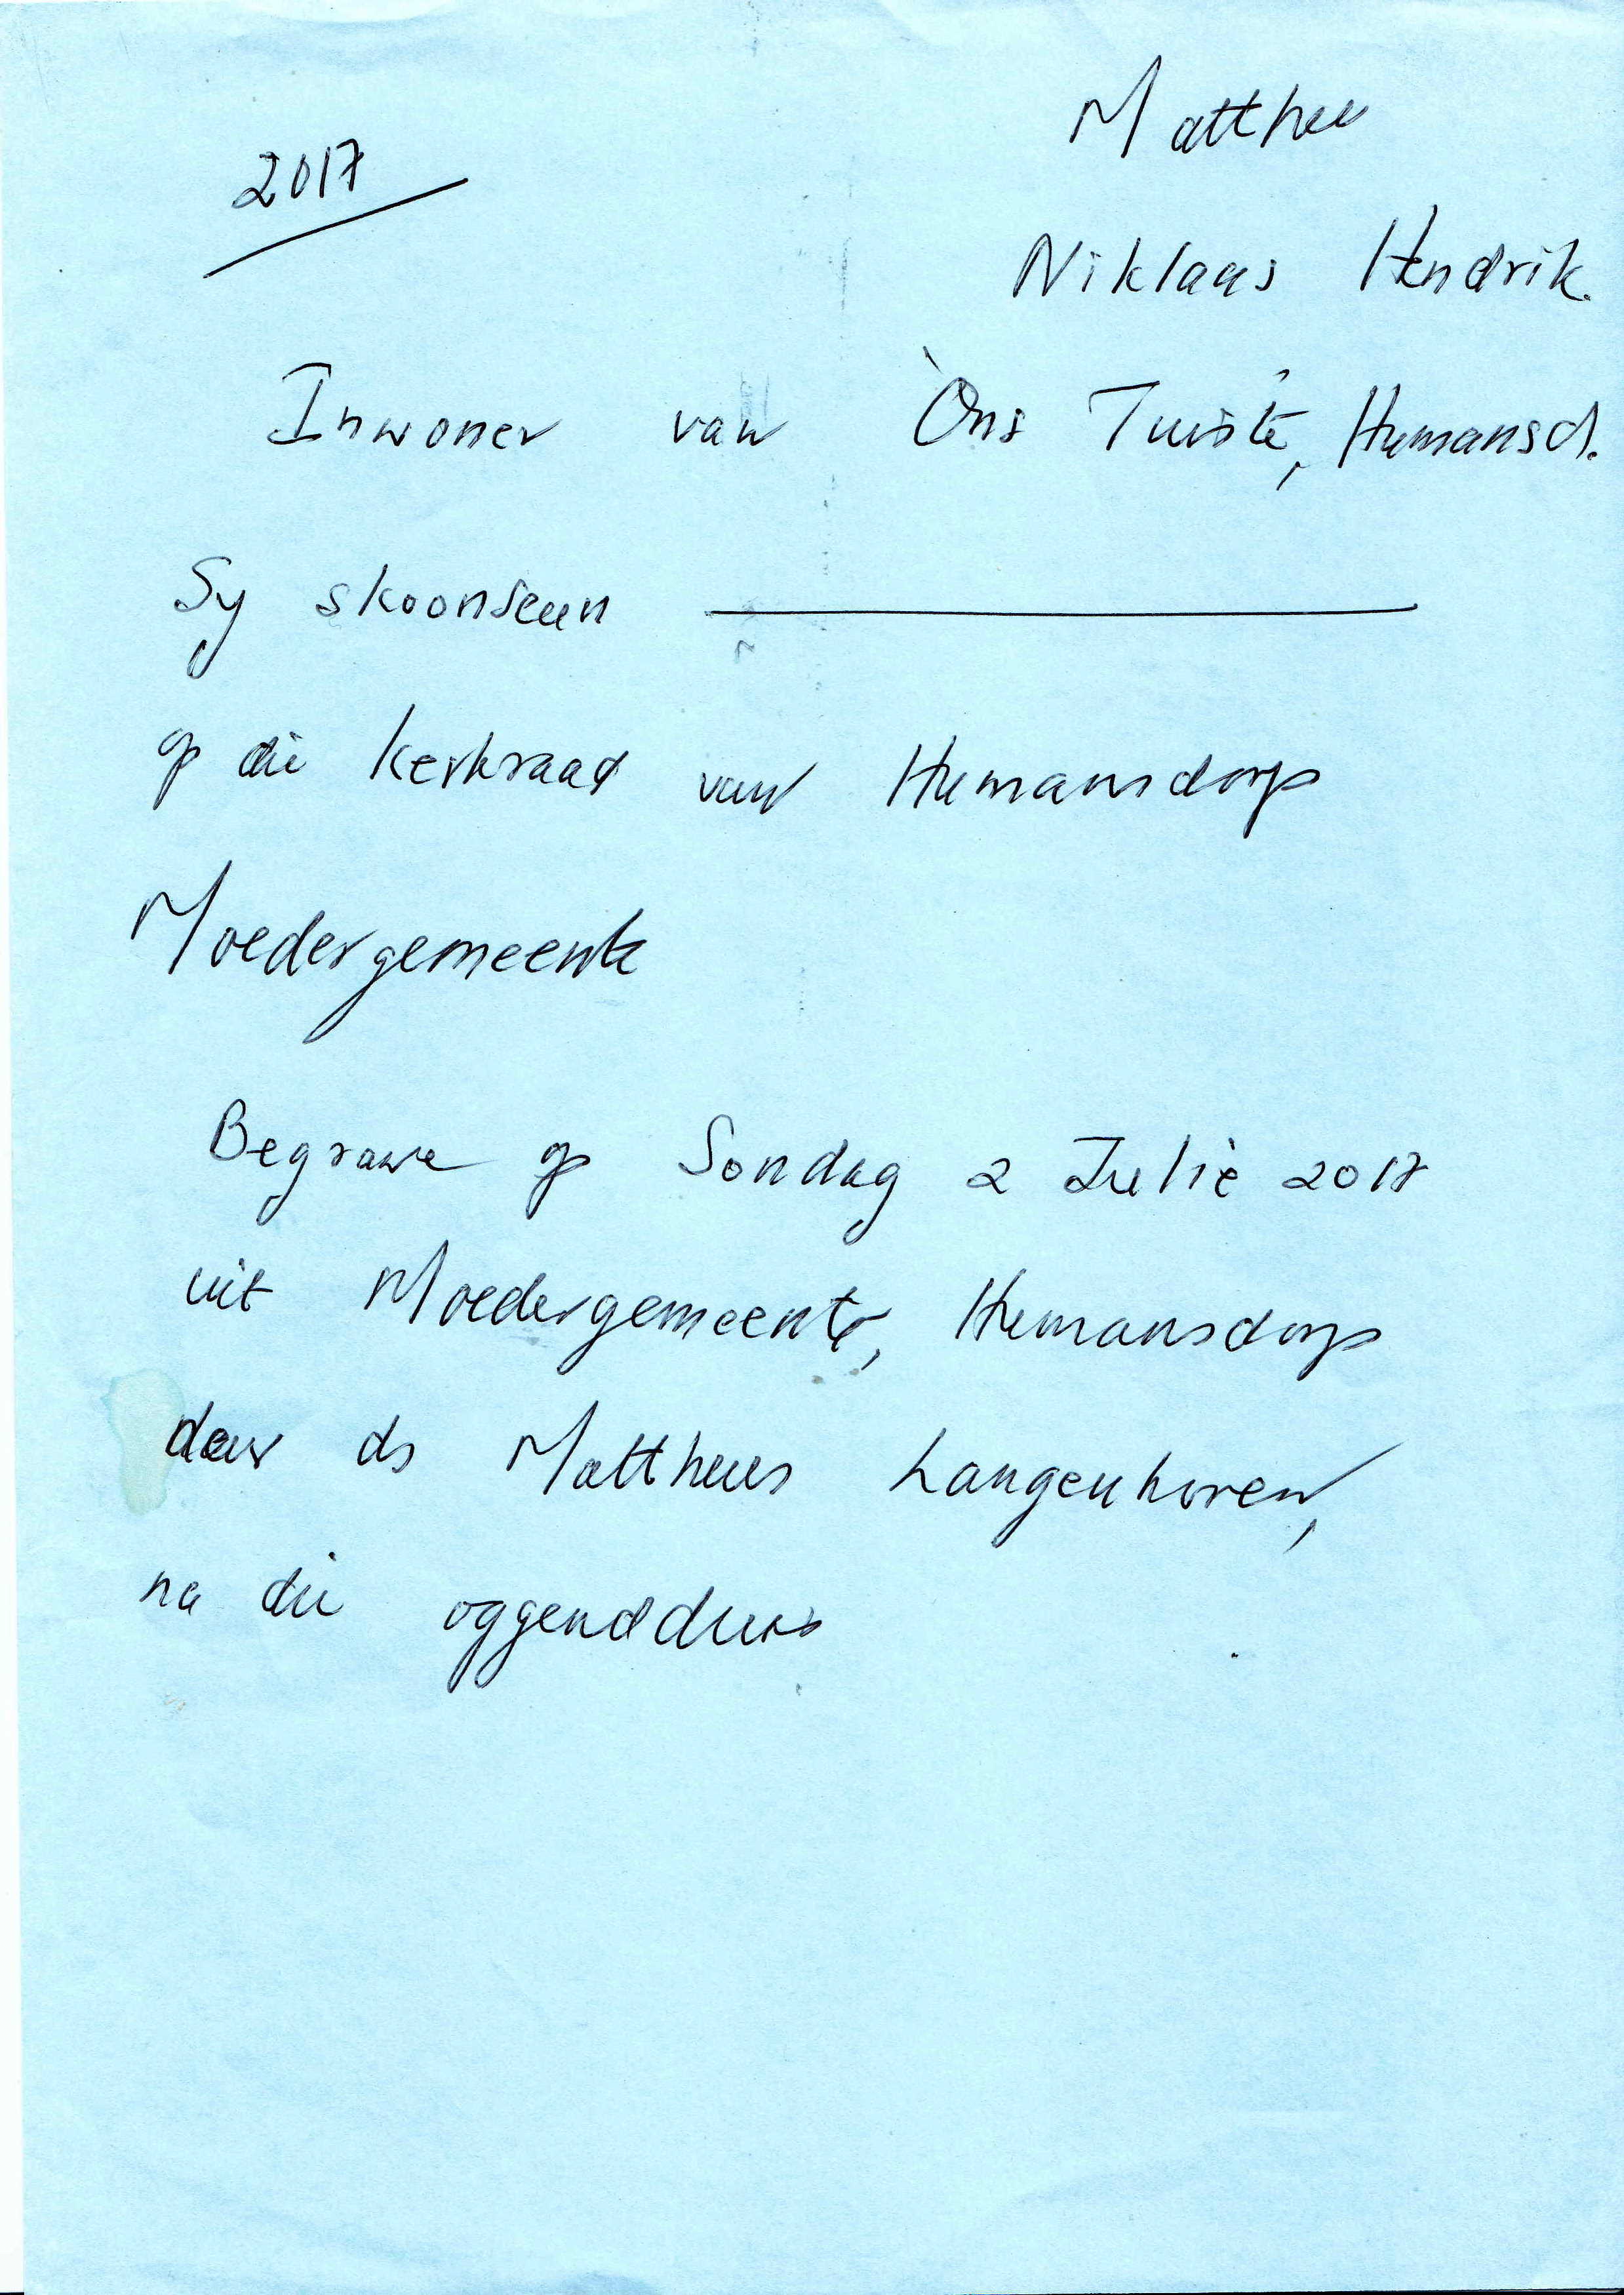 Matthee
2017
Niklaas Hendrik.
Inwoner van Ons Tuiste, Humansd.
Sy skoonseun
op die Kerkraad van Humansdorp
Moedergemeente
Begrawe op Sondag 2 Julie 2017
uit Moedergemeente, Humansdorp
deur ds Mattheus Langenhoven,
na die oggenddiens